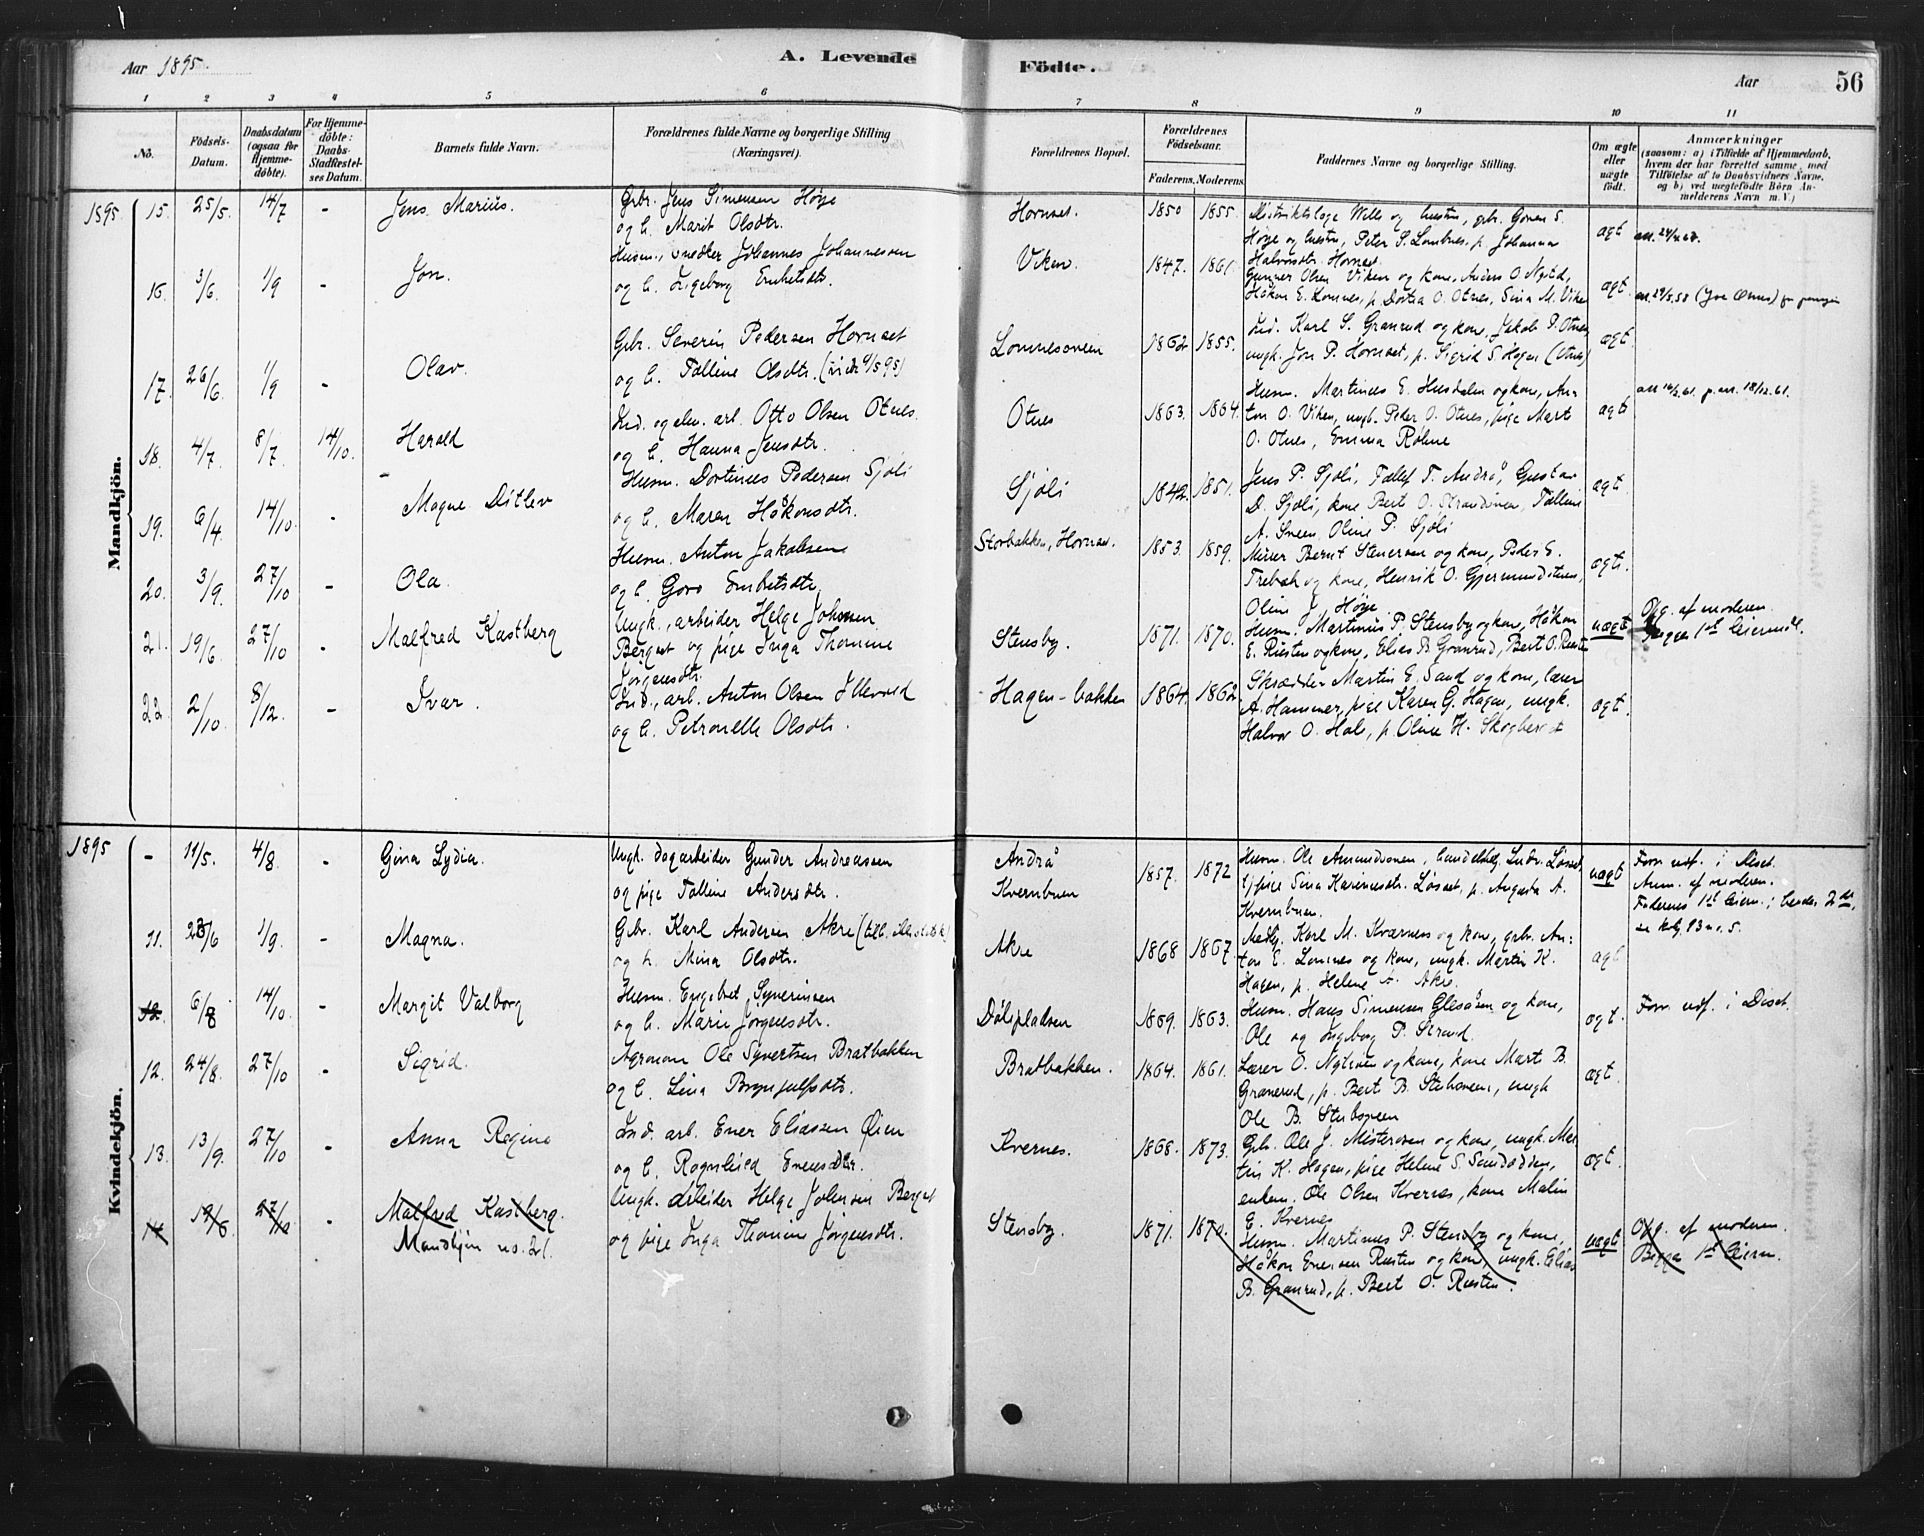 Aar 1895.
A. Levende
Födte.
Aar
56
1 2 3 4 5 6 7 8 9 10 11
No.
Födsels-Datum.
Daabsdatum (ogsaa for Hjemme-döbte).
For Hjemme-döbte: Daabs-Stadfæstel-ses Datum.
Barnets fulde Navn.
Forældrenes fulde Navne og borgerlige Stilling (Næringsvei).
Forældrenes Bopæl.
Forældrenes Födselsaar.
Faderens. Moderens.
Faddernes Navne og borgerlige Stilling.
Om ægte eller uægte födt.
Anmærkninger
(saasom: a) i Tilfælde af Hjemmedaab, hvem der har forrettet samme, med Tilföielse af to Daabsvidners Navne, og b) ved uægtefödte Börn Anmelderens Navn m.V.)
Mandkjön.
1895 15. 25/5. 14/7 - Jens Marius.
Gbr. Jens Simensen Høye
og h. Marit Olsdtr.
Hornset. 1850 1855.
Distriktslæge Wille og hustru, gbr. Goren S.
Høye og hustru, Peter S. Lombnes, p. Johanna
Halvorsdtr. Hornset.
ægt
16. 3/6. 1/9 - Jon.
Husm., snedker Johannes Johannessen
og h. Ingeborg Embetsdtr.
Viken. 1847. 1861.
Gunner Olsen Viken og kone, Anders O. Nysted,
Håkon E. Lomnes, p. Dortea O. Otnes, Sina M. Viken
ægt.
17. 26/6. 1/9 - Olav.
Gbr. Severin Pedersen Hornset
og h. Talline Olsdtr. (viet 9/5 95)
Lomnesoveien 1862 1855.
Ind. Karl S. Granrud og kone, Jakob P. Otnes,
ungk. Jon P. Hornset, p. Sigrid S. Hagen (Otnes)
ægt.
18. 4/7. 8/7. 14/10. Harald
Ind. og elv. arb. Otto Olsen Otnes
og h. Hanna Jensdtr.
Otnes 1863. 1864.
Husm. Martinus E. Husdalen og kone, An-
ton O. Viken, ungk. Peder O. Otnes, pige Mart
O. Otnes, Emma Rohne
ægt
19. 6/4. 14/10. - Magne Ditlev
Husm. Dortinus Pedersen Sjøli
og h. Maren Håkonsdtr.
Sjøli 1842. 1851.
Jens P. Sjøli, Tallef T. Andrå, Gustav
D. Sjøli, kone Bert O. Strandmoen, Talline
A. Sneen, Oline P. Sjøli
ægt.
20. 3/9. 27/10 - Ola.
Husm. Anton Jakobsen
og h. Goro Embetsdtr.
Storbakken, Hornset. 1853. 1859.
Murer Bernt Stenersen og kone, Peder E.
Trebæk og kone, Henrik O. Gjermundstuen,
Oline J. Høye
ægt.
21. 19/6. 27/10 - Malfred Kastberg
Ungk., arbeider Helge Johnsen
Berget og pige Inga Thomine
Jörgensdtr.
Stensby. 1871. 1870.
Husm. Martinus P. Stensby og kone, Håkon
E. Rusten og kone, Elias B. Granrud, Bert O. Rusten
uægt
Opg. af moderen.
Begges 1st leiermål.
22. 2/10. 8/12. - Ivar.
Ind., arb. Anton Olsen Illevold
og h. Petronelle Olsdtr.
Hagen-bakken 1864. 1862.
Skrædder Martin E. Sand og kone, lærer
A. Hammer, pige Karen G. Hagen, ungk.
Halvor O. Hole, p. Oline H. Skogberget
ægt.
Kvindekjön.
1895 - 11/5. 4/8. - Gina Lydia.
Ungk. dagarbeider Gunder Andreassen
og pige Talline Andersdtr.
Andrå
Kvernbuen 1857. 1872
Husm. Ole Amundsonen, handelsbetj. Ludv. Løsset,
pige Sina Karinesdtr. Løsset, p. Augusta A.
Kvernbuen.
uægt
Forr. udf. i Diset.
Anm. af moderen.
Faderens 1st leierm.; hendes 2det,
11. 23/6 1/9. - Magna.
Gbr. Karl Andersen Akre
og h. Mina Olsdtr.
Akre 1868 1867.
Karl M. Kværnes og kone, gbr. An-
ton E. Lomnes og kone, ungk. Martin K.
Hagen, p. Helene A. Akre.
ægt
12. 6/8 14/10. - Margit Valborg
Husm. Engebret Syverinsen
og h. Marie Jörgensdtr.
Dölipladsen 1869. 1863.
Husm. Hans Simensen Glesåsen og kone,
Ole og Ingeborg P. Strand.
ægt.
Forr. udf. i Diset.
12. 24/8. 27/10 - Sigrid.
Agronom Ole Syvertsen Bratbakken
og h. Lina Brynjulfsdtr.
Bratbakken. 1864. 1861.
Lærer O. Nytrøen og kone, kone Mart B.
Granrud, p. Bert B. Stubsveen, ungk
Ole B. Stubsveen
ægt.
13. 13/9. 27/10 - Anna Regine
Ind. arb. Ener Eliassen Øien
og h. Ragnhild Enersdtr.
Kvernes. 1868. 1873.
Gbr. Ole J. Misterosen og kone, ungk. Mar-
tin K. Hagen, pige Helene S. Sundodden,
enkem. Ole Olsen Kvernes, kone Malin
E. Kvernes
ægt.
14 19/6 27/10 - Malfred Kastberg.
Mandkjön no. 21.
Ungk. arbeider Helge Johnsen Berget
og pige Inga Thomine Jörgensdtr.
Stensby. 1871. 1870.
Husm. Martinus P. Stensby og kone,
Håkon Enersen Rusten og kone, ungk. Elias
B. Granrud, p. Bert O. Rusten.
uægt
Opg. af moderen.
Begges 1st leierm.